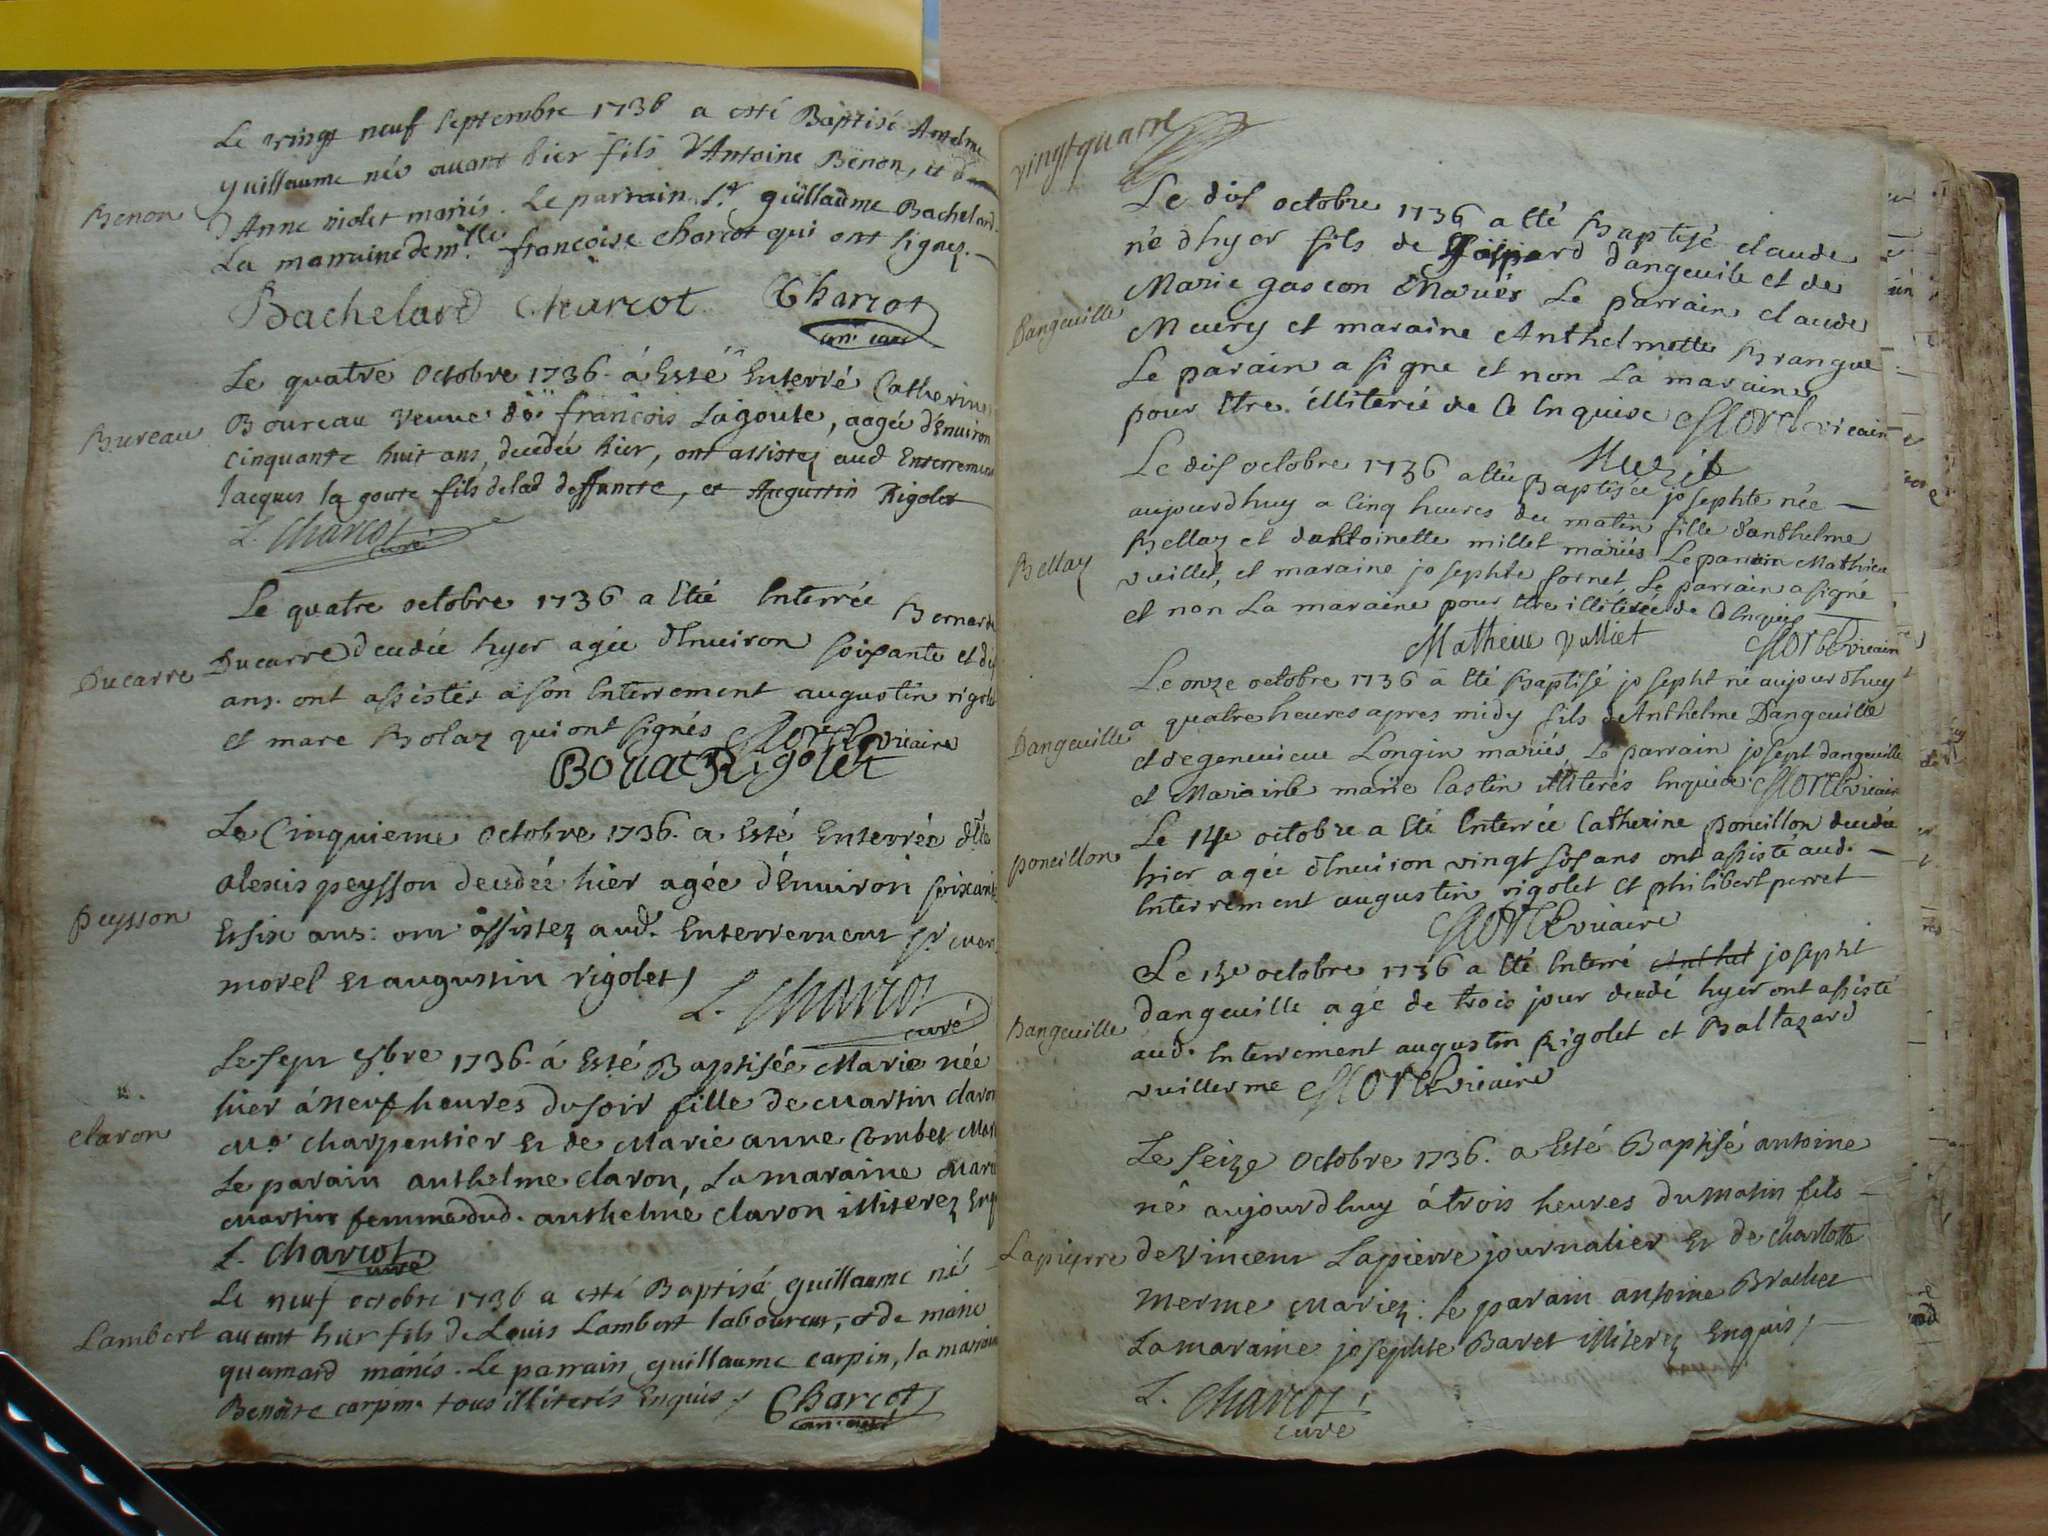 Le vingt neuf septembre 1736 a esté Baptisé Antelme
Benon
guillaume née avant hier fils d'Antoine Benon, et de
d'Anne violet mariés. Le parrain Sr. guillaume Bachelard
La marraine demlle françoise charcot qui ont signez.
Bachelard Charcot Charcot
Le quatre Octobre 1736. á Esté Enterré Catherine
Bureau
Boureau veuve de françois Lagoute, aagée d'Environ
cinquante huit ans, decedée hier, ont assistez aud Enterrement
Jacques la goute fils delad deffuncte, et Augustin Rigolet
L. Charcot curé
Le quatre octobre 1736 a Eté Enterrée Bernarde
Ducarre
Ducarre decedée hyer agée d'Environ soixante et dix
ans. ont assistés a son Enterrement augustin rigolet
et marc Bolaz qui ont signés Morel vicaire
Rigolet
Le Cinquieme Octobre 1736. a Esté Enterrée dlle
Peysson
alexis peysson decedée hier agée d'Environ soixante
Et six ans: ont assistez aud. Enterrement sr. marc
morel Et augustin rigolet /
L. Charcot curé
Le sept 8bre 1736. á Esté Baptisée Marie née
Claron
hier á neuf heures du soir fille de Martin claron
Mr charpentier Et de Marie anne Combet
Le parain anthelme claron, La maraine Marie
Martin femme dud. anthelme claron illiterez
L. Charcot curé
Le neuf octobre 1736 a esté Baptisé guillaume né
Lambert
avant hier fils de Louis Lambert laboureur, et de marie
quemard mariés. Le parrain guillaume carpin, la marraine
Benoite carpin tous illiterés Enquis / Charcot
vingt quatre
Le dix octobre 1736 a Eté Baptisé claude
né d'hyer fils de Gaspard dangeuile et de
Dangeuille
Marie gascon Mariés Le parrain claude
Meury et maraine Anthelmette Brangue
Le parain a signe et non La maraine
pour Etre illiterée de ce Enquise Morel vicaire
Le dix octobre 1736 a Eté Baptisée josephte née —
aujourdhuy a cinq heures du matin fille d'anthelme
Bellaz
Bellaz et d'antoinette millet mariés Le parrain Mathieu
vuillet, et maraine josephte fornet, Le parrain a signé
et non La maraine pour Etre illiterée de ce Enquise
Mathieu Vulliet Morel vicaire
Le onze octobre 1736 a Eté Baptisé josepht né aujourdhuy
Dangeuille
a quatre heures apres midy fils de Anthelme Dangeuille
et de genevieve Longin mariés, Le parrain josept dangeuille
et Maraine marie Lastin illiterés Enquise Morel vicaire
Le 14e octobre a Eté Enterrée Catherine poncillon decedée
poncillon
hier agée d'Environ vingt six ans ont assisté aud. —
Enterrement augustin rigolet Et philibert perret
Morel vicaire
Le 15e octobre 1736 a Eté Enterré josepht
Dangeuille
dangeuille agé de trois jour decedé hyer ont assisté
aud. Enterrement augustin Rigolet et Baltazard
vuillerme Morel vicaire
Le Seize Octobre 1736. a Esté Baptisé antoine
né aujourdhuy á trois heures du matin fils
Lapierre
de Vincent Lapierre journalier Et de charlotte
merme Mariez: le parain antoine Brachet
La maraine josephte Baret illiterez Enquis /
L. Charcot
curé